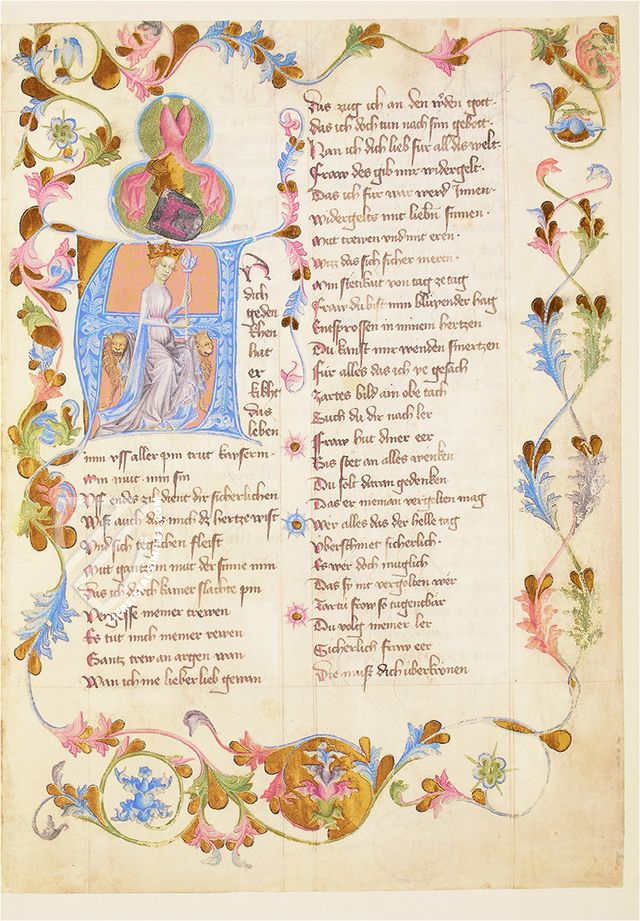 A
dich
geden
khen
hat
er
kikht
das
leben
min uss aller pin trut kayserin
min mut min sin
Uff endes zil dient dir sicherlichen
Wiss auch daz mich dz hertze wist
Und sich teglichen fleist
Mit gantzem mut der sinne min
Das ich durch kainer slachte pin
Vergesse niemer trewen
Es tut mich niemer rewen
Gantz trew an argen wan
Wan ich nie lieber lieb gewan
Das zug ich an den
das ich doch tun nach sim gebott
Wan ich dich lieb fur all dis welt
Fraw des gib mir widergelt
Das ich fur war werd Innen
Widergelts mit liebn sinnen
Mit trewen und mit eren
Wiss das sich sicher meren
Min stetikait von tag ze tag
Fraw du bist min blüyender hag
Entsprossen in minem hertzen
Du kanst mir wenden smertzen
Für alles das ich ye gesach
Zartes bild ain obe tach
Such du dir nach ler
Fraw hut diner eer
Bis stet an alles wenken
Du solt daran gedenken
Das er nieman vergelten mag
Wer alles das der helle tag
Uberschinet sicherlich
Es wer doch muglich
Das sy nit vergolten wer
Zartü frow so tugentbär
Du volg niemer ler
Sicherlich fraw eer
Die muss dich überkrönen